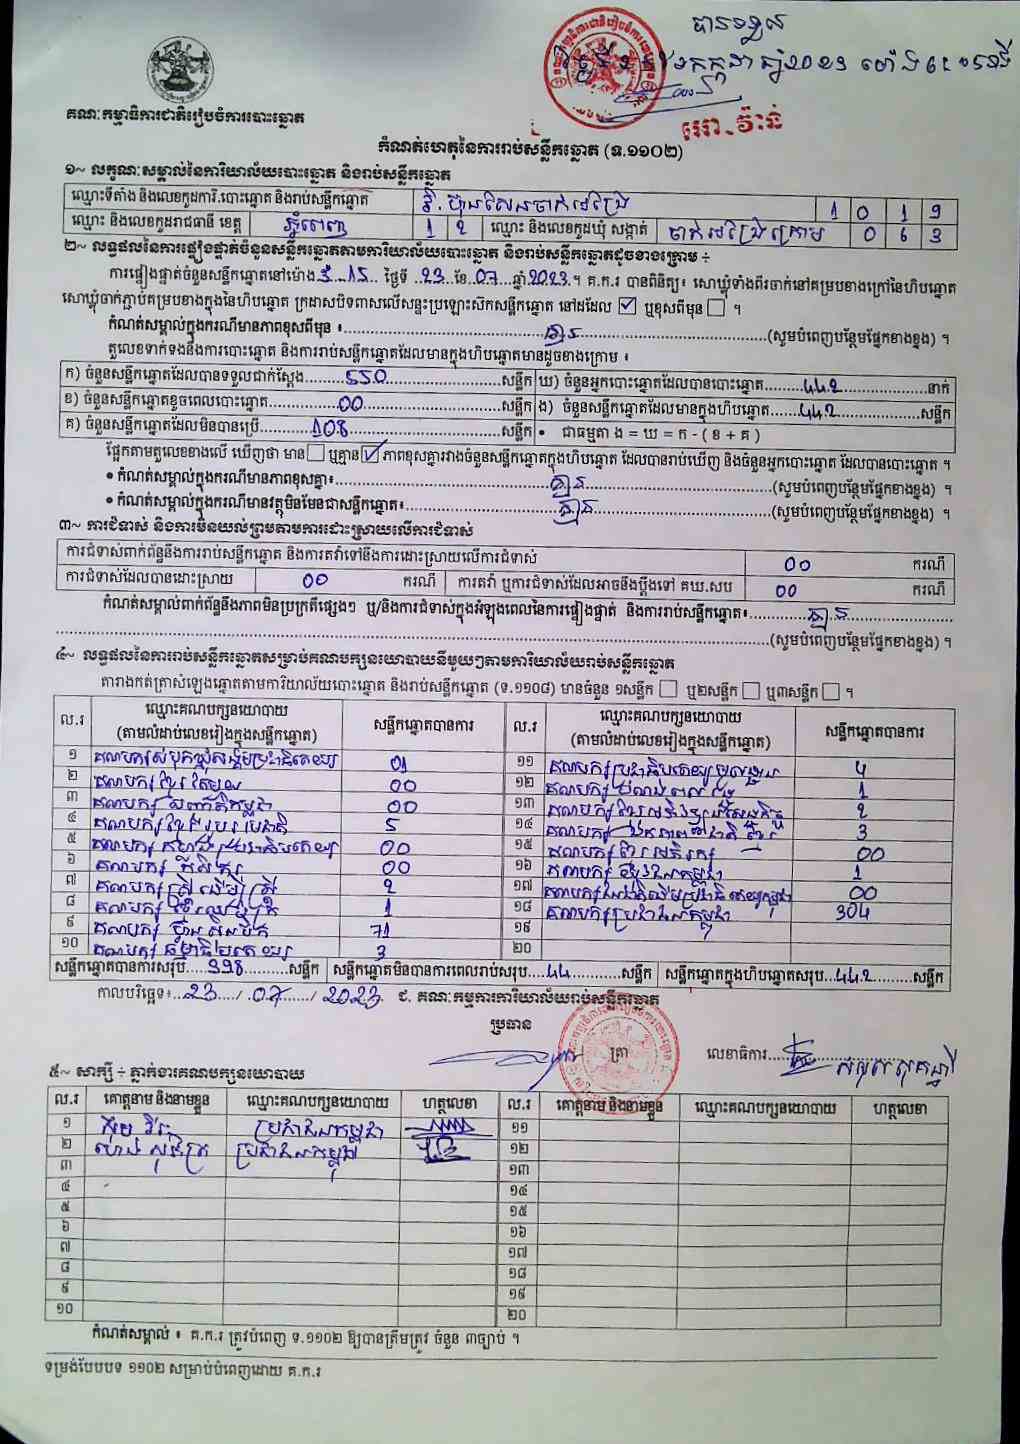 បានទទួល
គណៈកម្មាធិការជាតិរៀបចំការបោះឆ្នោត
កំណត់ហេតុនៃការរាប់សន្លឹកឆ្នោត (ទ.១១០២)
១~ លក្ខណៈសម្គាល់នៃការិយាល័យបោះឆ្នោត និងរាប់សន្លឹកឆ្នោត
ឈ្មោះទីតាំង និងលេខកូដការិ.បោះឆ្នោត និងរាប់សន្លឹកឆ្នោត 1 0 1 9
ឈ្មោះ និងលេខកូដរាជធានី ខេត្ត ភ្នំពេញ 1 2 ឈ្មោះ និងលេខកូដឃុំ សង្កាត់ ចាក់អង្រែក្រោម 0 6 3
២~ លទ្ធផលនៃការផ្ទៀងផ្ទាត់ចំនួនសន្លឹកឆ្នោតតាមការិយាល័យបោះឆ្នោត និងរាប់សន្លឹកឆ្នោតដូចខាងក្រោម ÷
ការផ្ទៀងផ្ទាត់ចំនួនសន្លឹកឆ្នោតនៅម៉ោង 3:15 ថ្ងៃទី 23 ខែ 07 ឆ្នាំ 2023 ។ គ.ក.រ បានពិនិត្យ៖ សោឃ្លុំទាំងពីរចាក់នៅគម្របខាងក្រៅនៃហិបឆ្នោត
សោឃ្លុំចាក់ភ្ជាប់គម្របខាងក្នុងនៃហិបឆ្នោត ក្រដាសបិទពាសលើសន្ទះប្រឡោះស៊កសន្លឹកឆ្នោត នៅដដែល ☑ ឬខុសពីមុន ☐ ។
កំណត់សម្គាល់ក្នុងករណីមានភាពខុសពីមុន ៖ គ្មាន (សូមបំពេញបន្ថែមផ្នែកខាងខ្នង) ។
តួលេខទាក់ទងនឹងការបោះឆ្នោត និងការរាប់សន្លឹកឆ្នោតដែលមានក្នុងហិបឆ្នោតមានដូចខាងក្រោម ៖
ក) ចំនួនសន្លឹកឆ្នោតដែលបានទទួលជាក់ស្ដែង 550 សន្លឹក ឃ) ចំនួនអ្នកបោះឆ្នោតដែលបានបោះឆ្នោត 442 នាក់
ខ) ចំនួនសន្លឹកឆ្នោតខូចពេលបោះឆ្នោត 00 សន្លឹក ង) ចំនួនសន្លឹកឆ្នោតដែលមានក្នុងហិបឆ្នោត 442 សន្លឹក
គ) ចំនួនសន្លឹកឆ្នោតដែលមិនបានប្រើ 108 សន្លឹក • ជាធម្មតា ង = ឃ = ក - ( ខ + គ )
ផ្អែកតាមតួលេខខាងលើ ឃើញថា មាន ☐ ឬគ្មាន ☑ ភាពខុសគ្នារវាងចំនួនសន្លឹកឆ្នោតក្នុងហិបឆ្នោត ដែលបានរាប់ឃើញ និងចំនួនអ្នកបោះឆ្នោត ដែលបានបោះឆ្នោត ។
• កំណត់សម្គាល់ក្នុងករណីមានភាពខុសគ្នា៖ គ្មាន (សូមបំពេញបន្ថែមផ្នែកខាងខ្នង) ។
• កំណត់សម្គាល់ក្នុងករណីមានវត្ថុមិនមែនជាសន្លឹកឆ្នោត៖ គ្មាន (សូមបំពេញបន្ថែមផ្នែកខាងខ្នង) ។
៣~ ការជំទាស់ និងការមិនយល់ព្រមតាមការដោះស្រាយលើការជំទាស់
ការជំទាស់ពាក់ព័ន្ធនឹងការរាប់សន្លឹកឆ្នោត និងការតវ៉ាទៅនឹងការដោះស្រាយលើការជំទាស់ 00 ករណី
ការជំទាស់ដែលបានដោះស្រាយ 00 ករណី ការតវ៉ា ឬការជំទាស់ដែលអាចនឹងប្ដឹងទៅ គឃ.សប 00 ករណី
កំណត់សម្គាល់ពាក់ព័ន្ធនឹងភាពមិនប្រក្រតីផ្សេងៗ ឬ/និងការជំទាស់ក្នុងអំឡុងពេលនៃការផ្ទៀងផ្ទាត់ និងការរាប់សន្លឹកឆ្នោត៖ គ្មាន
(សូមបំពេញបន្ថែមផ្នែកខាងខ្នង) ។
៤~ លទ្ធផលនៃការរាប់សន្លឹកឆ្នោតសម្រាប់គណបក្សនយោបាយនីមួយៗតាមការិយាល័យរាប់សន្លឹកឆ្នោត
តារាងកត់ត្រាសំឡេងឆ្នោតតាមការិយាល័យបោះឆ្នោត និងរាប់សន្លឹកឆ្នោត (ទ.១១០៨) មានចំនួន ១សន្លឹក ☐ ឬ២សន្លឹក ☐ ឬ៣សន្លឹក ☐ ។
ល.រ ឈ្មោះគណបក្សនយោបាយ (តាមលំដាប់លេខរៀងក្នុងសន្លឹកឆ្នោត) សន្លឹកឆ្នោតបានការ ល.រ ឈ្មោះគណបក្សនយោបាយ (តាមលំដាប់លេខរៀងក្នុងសន្លឹកឆ្នោត) សន្លឹកឆ្នោតបានការ
១ គណបក្សសំបុកឃ្មុំសង្គមប្រជាធិបតេយ្យ 01 ១១ 4
២ គណបក្សខ្មែររួបរួម 00 ១២ 1
៣ គណបក្សសញ្ជាតិកម្ពុជា 00 ១៣ 2
៤ គណបក្សខ្មែររួបរួមជាតិ 5 ១៤ 3
៥ គណបក្ស 00 ១៥ គណបក្ស 00
៦ គណបក្សកសិករ 00 ១៦ គណបក្ស 1
៧ គណបក្សស្ត្រីដើម្បីស្ត្រី 2 ១៧ 00
៨ គណបក្សខ្មែរឈប់ក្រ 1 ១៨ គណបក្សប្រជាជនកម្ពុជា 304
៩ គណបក្សហ៊្វុនស៊ិនប៉ិច 71 ១៩
១០ គណបក្សធម្មាធិបតេយ្យ 3 ២០
សន្លឹកឆ្នោតបានការសរុប 398 សន្លឹក សន្លឹកឆ្នោតមិនបានការពេលរាប់សរុប 44 សន្លឹក សន្លឹកឆ្នោតក្នុងហិបឆ្នោតសរុប 442 សន្លឹក
កាលបរិច្ឆេទ៖ 23 / 07 / 2023 ជ. គណៈកម្មការការិយាល័យរាប់សន្លឹកឆ្នោត
ប្រធាន
ត្រា លេខាធិការ
៥~ សាក្សី ÷ ភ្នាក់ងារគណបក្សនយោបាយ
ល.រ គោត្តនាម និងនាមខ្លួន ឈ្មោះគណបក្សនយោបាយ ហត្ថលេខា ល.រ គោត្តនាម និងនាមខ្លួន ឈ្មោះគណបក្សនយោបាយ ហត្ថលេខា
១ ប្រជាជនកម្ពុជា ១១
២ ប្រជាជនកម្ពុជា ១២
៣ ១៣
៤ ១៤
៥ ១៥
៦ ១៦
៧ ១៧
៨ ១៨
៩ ១៩
១០ ២០
កំណត់សម្គាល់ ៖ គ.ក.រ ត្រូវបំពេញ ទ.១១០២ ឱ្យបានត្រឹមត្រូវ ចំនួន ៣ច្បាប់ ។
ទម្រង់បែបបទ ១១០២ សម្រាប់បំពេញដោយ គ.ក.រ